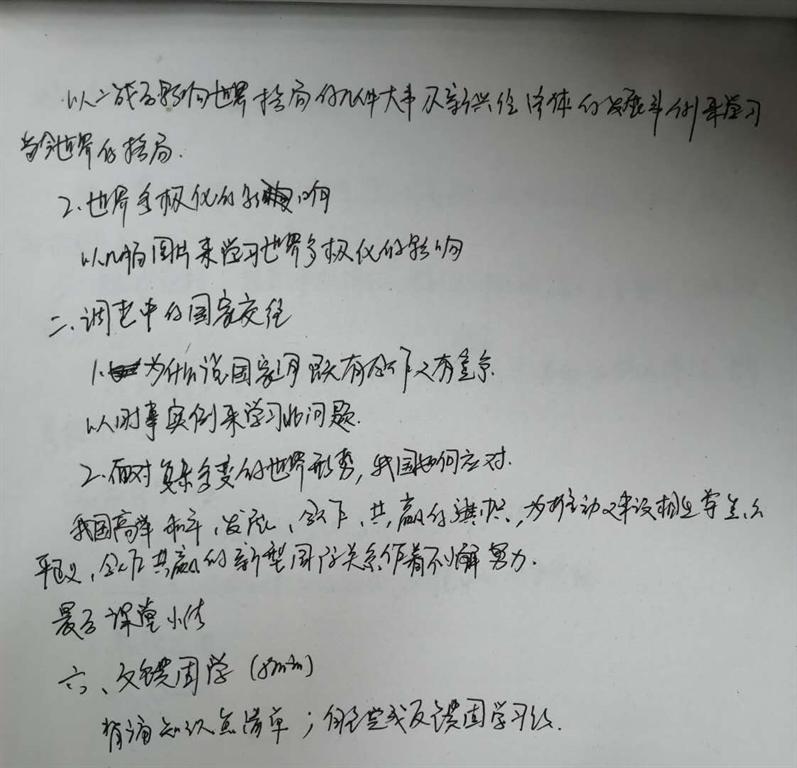 以二战后影响世界格局的几件大事及新兴经济体的发展为例来学习
当今世界的格局.
2.世界多极化的影响
以几幅图片来学习世界多极化的影响
二、调整中的国家交往
1.为什么说国家间既有合作又有竞争
以时事实例来学习此问题.
2.面对复杂多变的世界形势,我国如何应对.
我国高举和平、发展、合作、共赢的旗帜,为推动建设相互尊重、公
平正义、合作共赢的新型国际关系作着不懈努力.
最后课堂小结
六、反馈固学(8min)
背诵知识点清单;完成反馈固学习题.